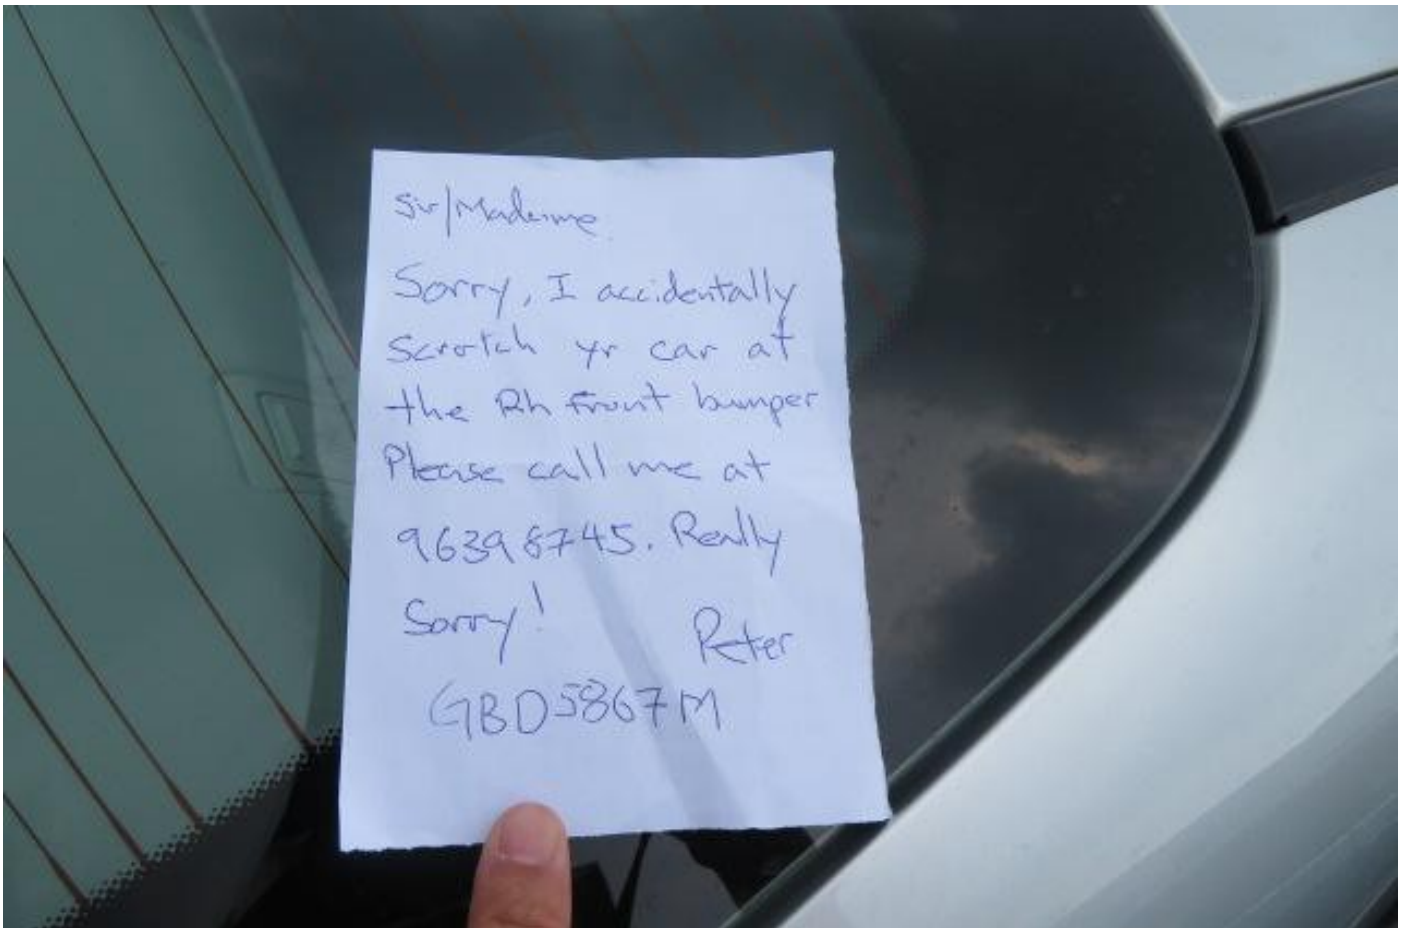 Sir/Madame
Sorry, I accidentally
Scratch yr car at
the Rh front bumper
Please call me at
96398745. Really
Sorry!
Peter
GBD5867M